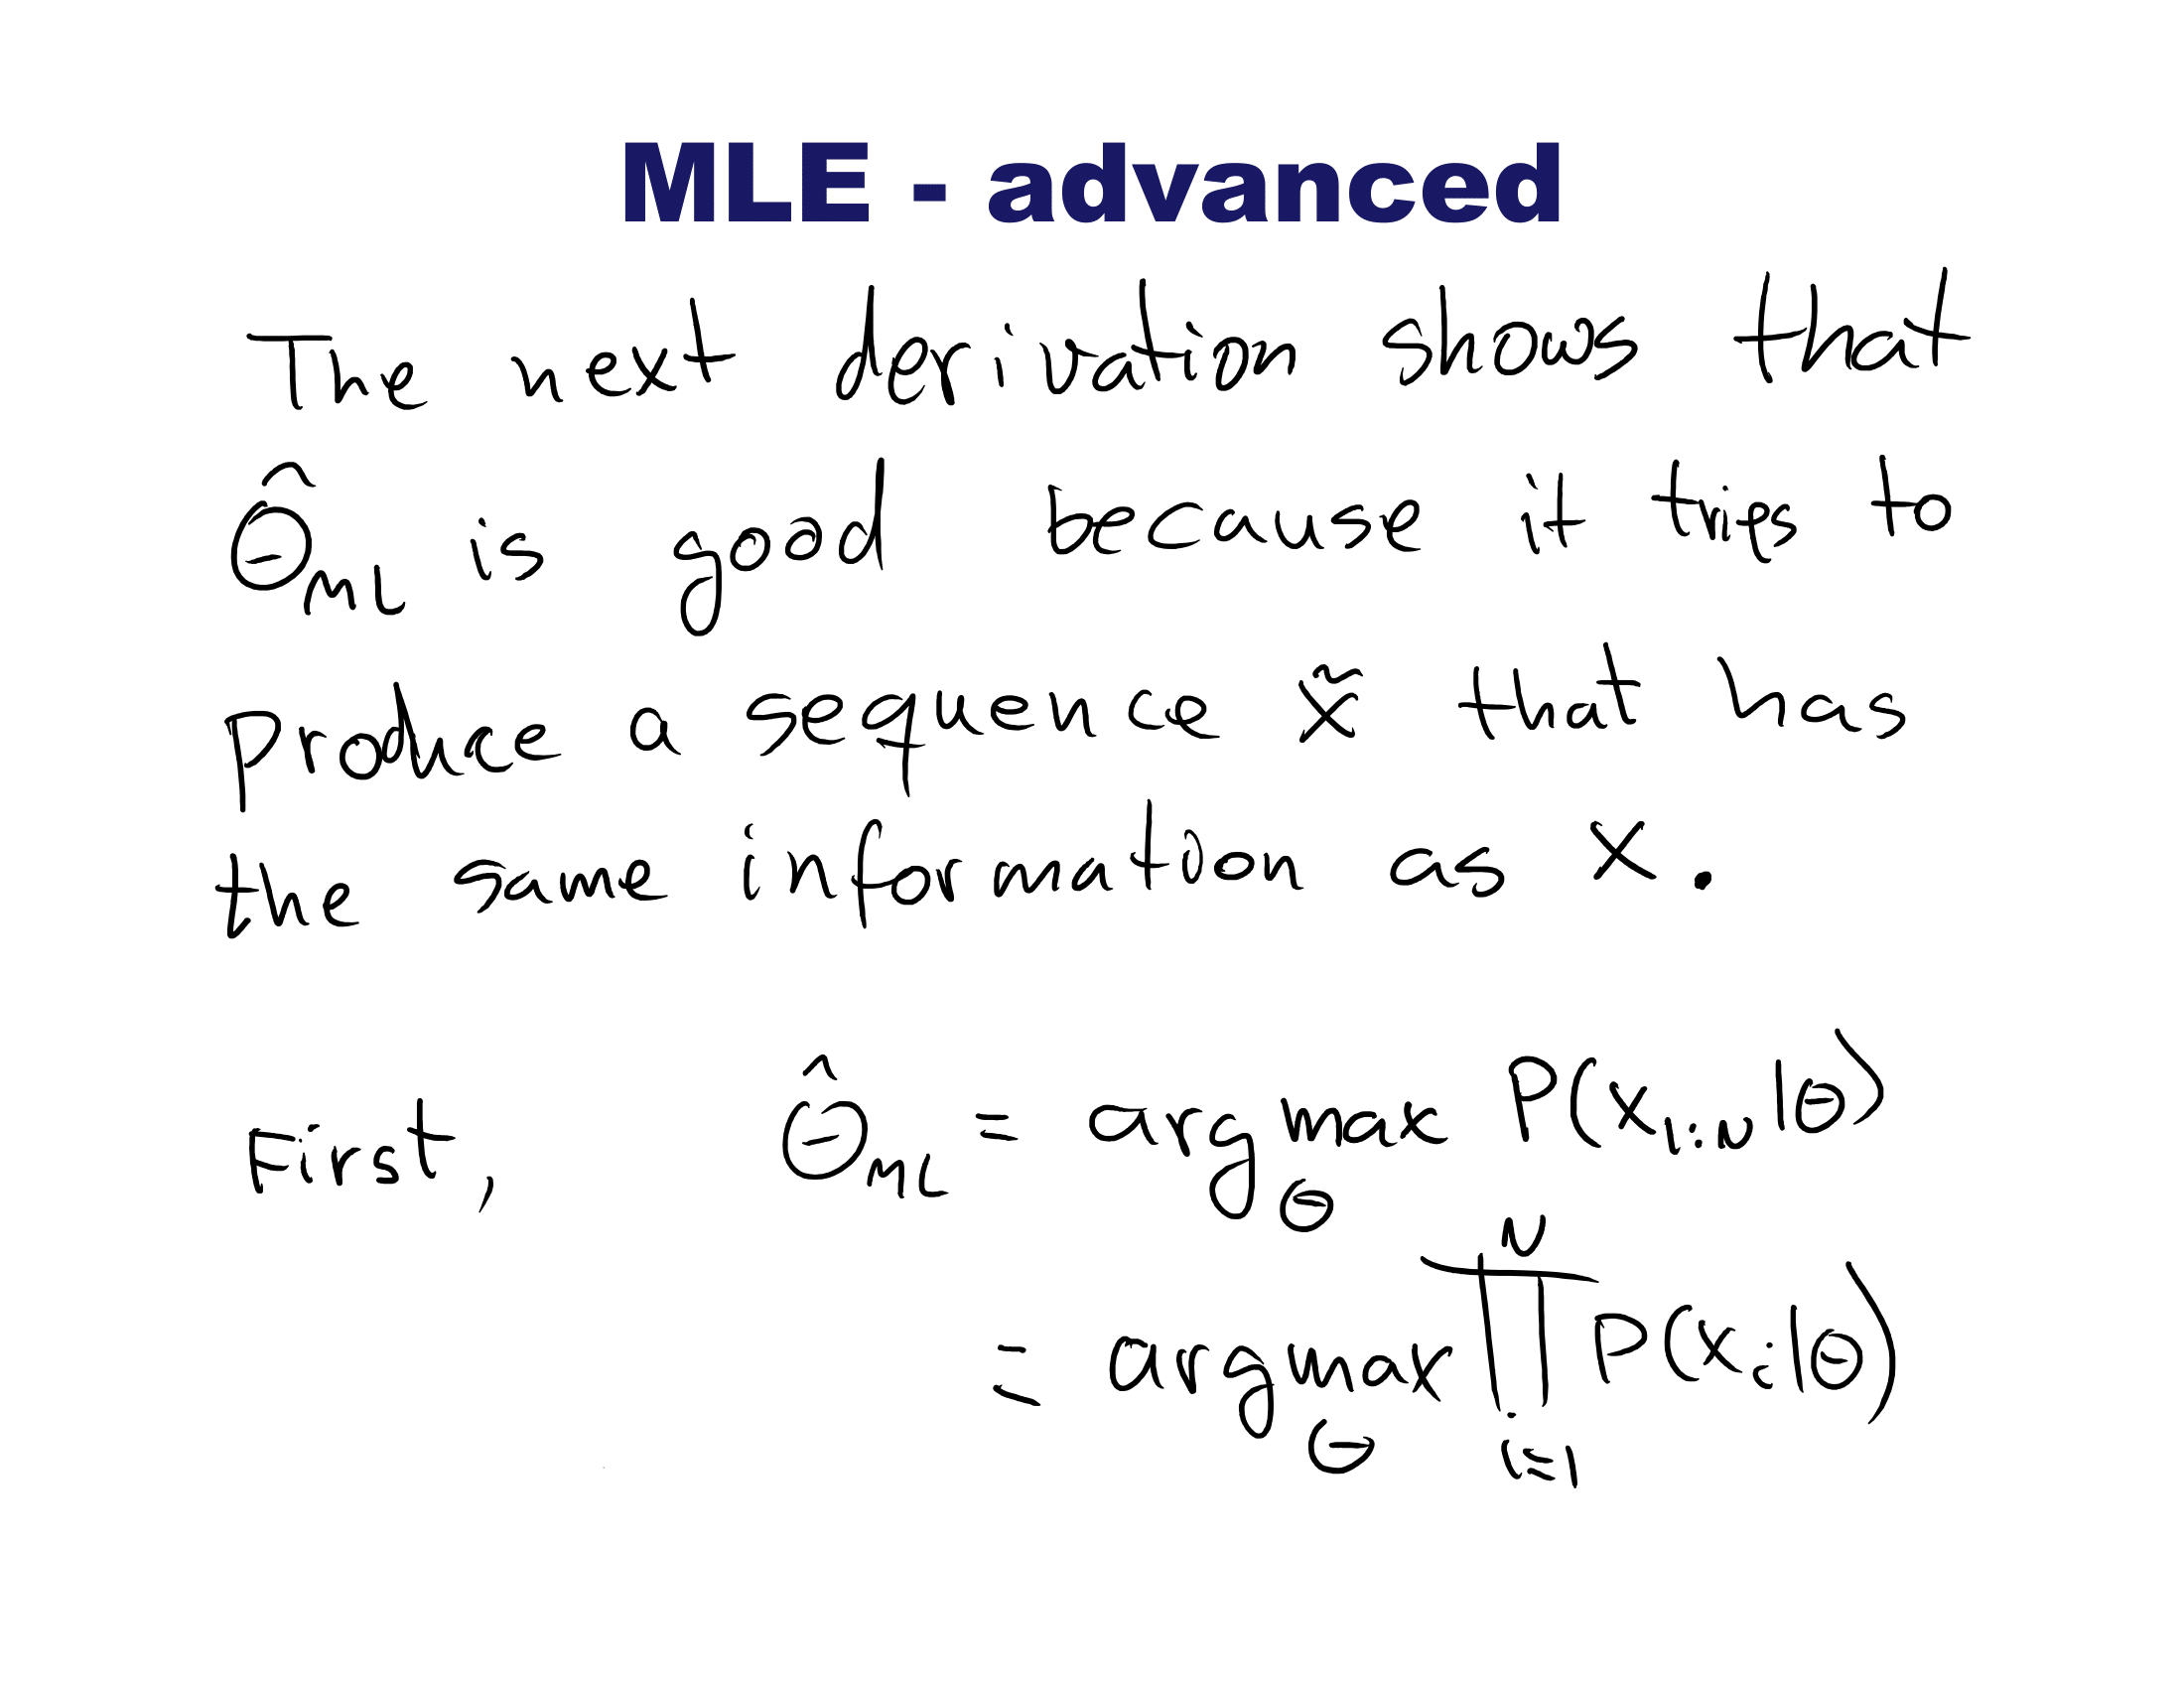 MLE - advanced
The next derivation shows that
θ̂_ML is good because it tries to
produce a sequence x̃ that has
the same information as x.
First, θ̂_ML = arg max_θ P(x_1:N|θ)
= arg max_θ ∏_{i=1}^{N} P(x_i|θ)